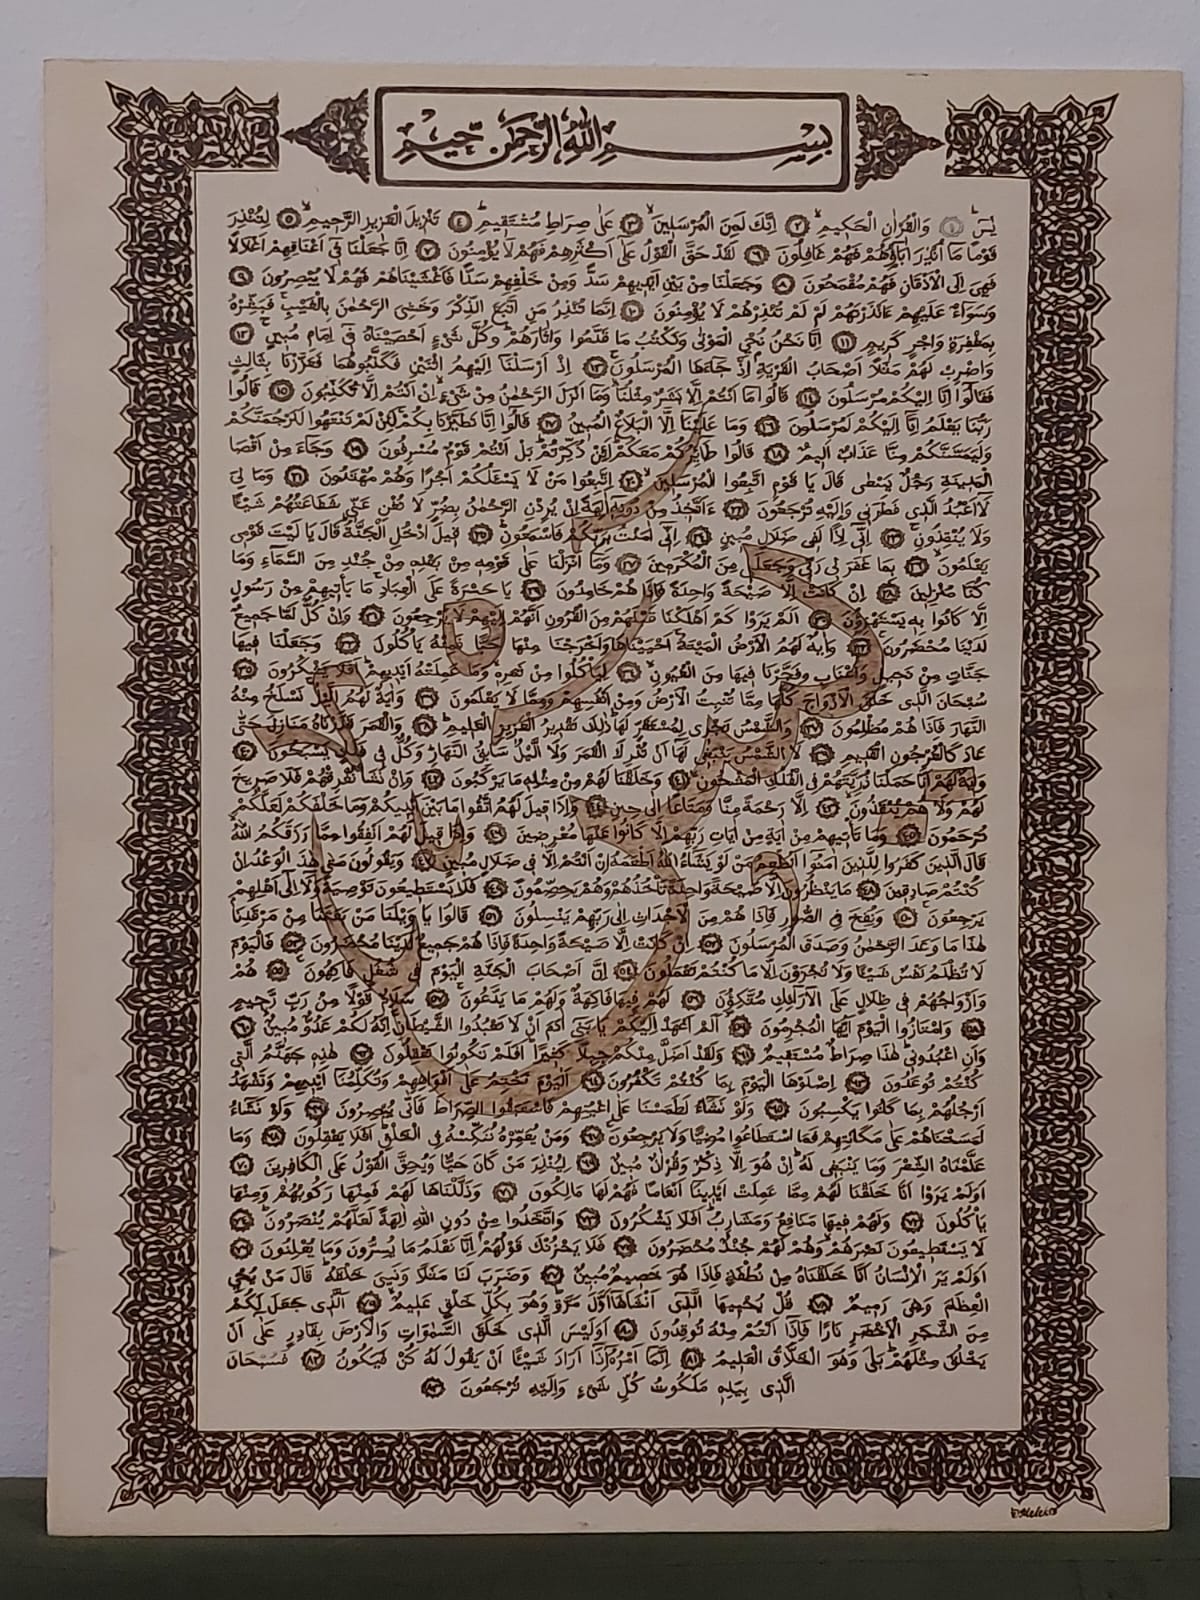 بِسْــمِ اللّٰهِ الرَّحْمٰنِ حٖيمِ
يٰسٓ ۚ ١ وَالْقُرْاٰنِ الْحَكٖيمِۙ ٢ اِنَّكَ لَمِنَ الْمُرْسَلٖينَۙ ٣ عَلٰى صِرَاطٍ مُسْتَقٖيمٍؕ ٤ تَنْزٖيلَ الْعَزٖيزِ الرَّحٖيمِۙ ٥ لِتُنْذِرَ
قَوْمًا مَا اُنْذِرَ اٰبَاؤُهُمْ فَهُمْ غَافِلُونَ ٦ لَقَدْ حَقَّ الْقَوْلُ عَلٰى اَكْثَرِهِمْ فَهُمْ لَا يُؤْمِنُونَ ٧ اِنَّا جَعَلْنَا فٖى اَعْنَاقِهِمْ اَغْلَالًا
فَهِىَ اِلَى الْاَذْقَانِ فَهُمْ مُقْمَحُونَ ٨ وَجَعَلْنَا مِنْ بَيْنِ اَيْدٖيهِمْ سَدًّا وَمِنْ خَلْفِهِمْ سَدًّا فَاَغْشَيْنَاهُمْ فَهُمْ لَا يُبْصِرُونَ ٩
وَسَوَاءٌ عَلَيْهِمْ ءَاَنْذَرْتَهُمْ اَمْ لَمْ تُنْذِرْهُمْ لَا يُؤْمِنُونَ ١٠ اِنَّمَا تُنْذِرُ مَنِ اتَّبَعَ الذِّكْرَ وَخَشِىَ الرَّحْمٰنَ بِالْغَيْبِۚ فَبَشِّرْهُ
بِمَغْفِرَةٍ وَاَجْرٍ كَرٖيمٍ ١١ اِنَّا نَحْنُ نُحْيِ الْمَوْتٰى وَنَكْتُبُ مَا قَدَّمُوا وَاٰثَارَهُمْؕ وَكُلَّ شَىْءٍ اَحْصَيْنَاهُ فٖى اِمَامٍ مُبٖينٍ ١٢
وَاضْرِبْ لَهُمْ مَثَلًا اَصْحَابَ الْقَرْيَةِۘ اِذْ جَاءَهَا الْمُرْسَلُونَۚ ١٣ اِذْ اَرْسَلْنَا اِلَيْهِمُ اثْنَيْنِ فَكَذَّبُوهُمَا فَعَزَّزْنَا بِثَالِثٍ
فَقَالُوا اِنَّا اِلَيْكُمْ مُرْسَلُونَ ١٤ قَالُوا مَا اَنْتُمْ اِلَّا بَشَرٌ مِثْلُنَاۙ وَمَا اَنْزَلَ الرَّحْمٰنُ مِنْ شَىْءٍۙ اِنْ اَنْتُمْ اِلَّا تَكْذِبُونَ ١٥ قَالُوا
رَبُّنَا يَعْلَمُ اِنَّا اِلَيْكُمْ لَمُرْسَلُونَ ١٦ وَمَا عَلَيْنَا اِلَّا الْبَلَاغُ الْمُبٖينُ ١٧ قَالُوا اِنَّا تَطَيَّرْنَا بِكُمْۚ لَئِنْ لَمْ تَنْتَهُوا لَنَرْجُمَنَّكُمْ
وَلَيَمَسَّنَّكُمْ مِنَّا عَذَابٌ اَلٖيمٌ ١٨ قَالُوا طَائِرُكُمْ مَعَكُمْؕ اَئِنْ ذُكِّرْتُمْؕ بَلْ اَنْتُمْ قَوْمٌ مُسْرِفُونَ ١٩ وَجَاءَ مِنْ اَقْصَا
الْمَدٖينَةِ رَجُلٌ يَسْعٰى قَالَ يَا قَوْمِ اتَّبِعُوا الْمُرْسَلٖينَۙ ٢٠ اِتَّبِعُوا مَنْ لَا يَسْئَلُكُمْ اَجْرًا وَهُمْ مُهْتَدُونَ ٢١ وَمَا لِىَ
لَا اَعْبُدُ الَّذٖى فَطَرَنٖى وَاِلَيْهِ تُرْجَعُونَ ٢٢ ءَاَتَّخِذُ مِنْ دُونِهٖ اٰلِهَةً اِنْ يُرِدْنِ الرَّحْمٰنُ بِضُرٍّ لَا تُغْنِ عَنّٖى شَفَاعَتُهُمْ شَيْئًا
وَلَا يُنْقِذُونِۚ ٢٣ اِنّٖى اِذًا لَفٖى ضَلَالٍ مُبٖينٍ ٢٤ اِنّٖى اٰمَنْتُ بِرَبِّكُمْ فَاسْمَعُونِؕ ٢٥ قٖيلَ ادْخُلِ الْجَنَّةَؕ قَالَ يَا لَيْتَ قَوْمٖى
يَعْلَمُونَۙ ٢٦ بِمَا غَفَرَ لٖى رَبّٖى وَجَعَلَنٖى مِنَ الْمُكْرَمٖينَ ٢٧ وَمَا اَنْزَلْنَا عَلٰى قَوْمِهٖ مِنْ بَعْدِهٖ مِنْ جُنْدٍ مِنَ السَّمَاءِ وَمَا
كُنَّا مُنْزِلٖينَ ٢٨ اِنْ كَانَتْ اِلَّا صَيْحَةً وَاحِدَةً فَاِذَا هُمْ خَامِدُونَ ٢٩ يَا حَسْرَةً عَلَى الْعِبَادِۚ مَا يَاْتٖيهِمْ مِنْ رَسُولٍ
اِلَّا كَانُوا بِهٖ يَسْتَهْزِؤُنَ ٣٠ اَلَمْ يَرَوْا كَمْ اَهْلَكْنَا قَبْلَهُمْ مِنَ الْقُرُونِ اَنَّهُمْ اِلَيْهِمْ لَا يَرْجِعُونَؕ ٣١ وَاِنْ كُلٌّ لَمَّا جَمٖيعٌ
لَدَيْنَا مُحْضَرُونَ ٣٢ وَاٰيَةٌ لَهُمُ الْاَرْضُ الْمَيْتَةُۚ اَحْيَيْنَاهَا وَاَخْرَجْنَا مِنْهَا حَبًّا فَمِنْهُ يَاْكُلُونَ ٣٣ وَجَعَلْنَا فٖيهَا
جَنَّاتٍ مِنْ نَخٖيلٍ وَاَعْنَابٍ وَفَجَّرْنَا فٖيهَا مِنَ الْعُيُونِۙ ٣٤ لِيَاْكُلُوا مِنْ ثَمَرِهٖۙ وَمَا عَمِلَتْهُ اَيْدٖيهِمْؕ اَفَلَا يَشْكُرُونَ ٣٥
سُبْحَانَ الَّذٖى خَلَقَ الْاَزْوَاجَ كُلَّهَا مِمَّا تُنْبِتُ الْاَرْضُ وَمِنْ اَنْفُسِهِمْ وَمِمَّا لَا يَعْلَمُونَ ٣٦ وَاٰيَةٌ لَهُمُ الَّيْلُۚ نَسْلَخُ مِنْهُ
النَّهَارَ فَاِذَا هُمْ مُظْلِمُونَۙ ٣٧ وَالشَّمْسُ تَجْرٖى لِمُسْتَقَرٍّ لَهَاؕ ذٰلِكَ تَقْدٖيرُ الْعَزٖيزِ الْعَلٖيمِؕ ٣٨ وَالْقَمَرَ قَدَّرْنَاهُ مَنَازِلَ حَتّٰى
عَادَ كَالْعُرْجُونِ الْقَدٖيمِ ٣٩ لَا الشَّمْسُ يَنْبَغٖى لَهَا اَنْ تُدْرِكَ الْقَمَرَ وَلَا الَّيْلُ سَابِقُ النَّهَارِؕ وَكُلٌّ فٖى فَلَكٍ يَسْبَحُونَ ٤٠
وَاٰيَةٌ لَهُمْ اَنَّا حَمَلْنَا ذُرِّيَّتَهُمْ فِى الْفُلْكِ الْمَشْحُونِۙ ٤١ وَخَلَقْنَا لَهُمْ مِنْ مِثْلِهٖ مَا يَرْكَبُونَ ٤٢ وَاِنْ نَشَاْ نُغْرِقْهُمْ فَلَا صَرٖيخَ
لَهُمْ وَلَا هُمْ يُنْقَذُونَۙ ٤٣ اِلَّا رَحْمَةً مِنَّا وَمَتَاعًا اِلٰى حٖينٍ ٤٤ وَاِذَا قٖيلَ لَهُمُ اتَّقُوا مَا بَيْنَ اَيْدٖيكُمْ وَمَا خَلْفَكُمْ لَعَلَّكُمْ
تُرْحَمُونَ ٤٥ وَمَا تَاْتٖيهِمْ مِنْ اٰيَةٍ مِنْ اٰيَاتِ رَبِّهِمْ اِلَّا كَانُوا عَنْهَا مُعْرِضٖينَ ٤٦ وَاِذَا قٖيلَ لَهُمْ اَنْفِقُوا مِمَّا رَزَقَكُمُ اللّٰهُ
قَالَ الَّذٖينَ كَفَرُوا لِلَّذٖينَ اٰمَنُوا اَنُطْعِمُ مَنْ لَوْ يَشَاءُ اللّٰهُ اَطْعَمَهُ اِنْ اَنْتُمْ اِلَّا فٖى ضَلَالٍ مُبٖينٍ ٤٧ وَيَقُولُونَ مَتٰى هٰذَا الْوَعْدُ اِنْ
كُنْتُمْ صَادِقٖينَ ٤٨ مَا يَنْظُرُونَ اِلَّا صَيْحَةً وَاحِدَةً تَاْخُذُهُمْ وَهُمْ يَخِصِّمُونَ ٤٩ فَلَا يَسْتَطٖيعُونَ تَوْصِيَةً وَلَا اِلٰى اَهْلِهِمْ
يَرْجِعُونَ ٥٠ وَنُفِخَ فِى الصُّورِ فَاِذَا هُمْ مِنَ الْاَجْدَاثِ اِلٰى رَبِّهِمْ يَنْسِلُونَ ٥١ قَالُوا يَا وَيْلَنَا مَنْ بَعَثَنَا مِنْ مَرْقَدِنَا
هٰذَا مَا وَعَدَ الرَّحْمٰنُ وَصَدَقَ الْمُرْسَلُونَ ٥٢ اِنْ كَانَتْ اِلَّا صَيْحَةً وَاحِدَةً فَاِذَا هُمْ جَمٖيعٌ لَدَيْنَا مُحْضَرُونَ ٥٣ فَالْيَوْمَ
لَا تُظْلَمُ نَفْسٌ شَيْئًا وَلَا تُجْزَوْنَ اِلَّا مَا كُنْتُمْ تَعْمَلُونَ ٥٤ اِنَّ اَصْحَابَ الْجَنَّةِ الْيَوْمَ فٖى شُغُلٍ فَاكِهُونَۚ ٥٥ هُمْ
وَاَزْوَاجُهُمْ فٖى ظِلَالٍ عَلَى الْاَرَائِكِ مُتَّكِؤُنَ ٥٦ لَهُمْ فٖيهَا فَاكِهَةٌ وَلَهُمْ مَا يَدَّعُونَۚ ٥٧ سَلَامٌ قَوْلًا مِنْ رَبٍّ رَحٖيمٍ
٥٨ وَامْتَازُوا الْيَوْمَ اَيُّهَا الْمُجْرِمُونَ ٥٩ اَلَمْ اَعْهَدْ اِلَيْكُمْ يَا بَنٖى اٰدَمَ اَنْ لَا تَعْبُدُوا الشَّيْطَانَۚ اِنَّهُ لَكُمْ عَدُوٌّ مُبٖينٌ ٦٠
وَاَنِ اعْبُدُونٖىؕ هٰذَا صِرَاطٌ مُسْتَقٖيمٌ ٦١ وَلَقَدْ اَضَلَّ مِنْكُمْ جِبِلًّا كَثٖيرًاؕ اَفَلَمْ تَكُونُوا تَعْقِلُونَ ٦٢ هٰذِهٖ جَهَنَّمُ الَّتٖى
كُنْتُمْ تُوعَدُونَ ٦٣ اِصْلَوْهَا الْيَوْمَ بِمَا كُنْتُمْ تَكْفُرُونَ ٦٤ اَلْيَوْمَ نَخْتِمُ عَلٰى اَفْوَاهِهِمْ وَتُكَلِّمُنَا اَيْدٖيهِمْ وَتَشْهَدُ
اَرْجُلُهُمْ بِمَا كَانُوا يَكْسِبُونَ ٦٥ وَلَوْ نَشَاءُ لَطَمَسْنَا عَلٰى اَعْيُنِهِمْ فَاسْتَبَقُوا الصِّرَاطَ فَاَنّٰى يُبْصِرُونَ ٦٦ وَلَوْ نَشَاءُ
لَمَسَخْنَاهُمْ عَلٰى مَكَانَتِهِمْ فَمَا اسْتَطَاعُوا مُضِيًّا وَلَا يَرْجِعُونَ ٦٧ وَمَنْ نُعَمِّرْهُ نُنَكِّسْهُ فِى الْخَلْقِؕ اَفَلَا يَعْقِلُونَ ٦٨ وَمَا
عَلَّمْنَاهُ الشِّعْرَ وَمَا يَنْبَغٖى لَهُؕ اِنْ هُوَ اِلَّا ذِكْرٌ وَقُرْاٰنٌ مُبٖينٌ ٦٩ لِيُنْذِرَ مَنْ كَانَ حَيًّا وَيَحِقَّ الْقَوْلُ عَلَى الْكَافِرٖينَ ٧٠
اَوَلَمْ يَرَوْا اَنَّا خَلَقْنَا لَهُمْ مِمَّا عَمِلَتْ اَيْدٖينَا اَنْعَامًا فَهُمْ لَهَا مَالِكُونَ ٧١ وَذَلَّلْنَاهَا لَهُمْ فَمِنْهَا رَكُوبُهُمْ وَمِنْهَا
يَاْكُلُونَ ٧٢ وَلَهُمْ فٖيهَا مَنَافِعُ وَمَشَارِبُؕ اَفَلَا يَشْكُرُونَ ٧٣ وَاتَّخَذُوا مِنْ دُونِ اللّٰهِ اٰلِهَةً لَعَلَّهُمْ يُنْصَرُونَؕ ٧٤
لَا يَسْتَطٖيعُونَ نَصْرَهُمْۙ وَهُمْ لَهُمْ جُنْدٌ مُحْضَرُونَ ٧٥ فَلَا يَحْزُنْكَ قَوْلُهُمْۘ اِنَّا نَعْلَمُ مَا يُسِرُّونَ وَمَا يُعْلِنُونَ ٧٦
اَوَلَمْ يَرَ الْاِنْسَانُ اَنَّا خَلَقْنَاهُ مِنْ نُطْفَةٍ فَاِذَا هُوَ خَصٖيمٌ مُبٖينٌ ٧٧ وَضَرَبَ لَنَا مَثَلًا وَنَسِىَ خَلْقَهُؕ قَالَ مَنْ يُحْيِ
الْعِظَامَ وَهِىَ رَمٖيمٌ ٧٨ قُلْ يُحْيٖيهَا الَّذٖى اَنْشَاَهَا اَوَّلَ مَرَّةٍؕ وَهُوَ بِكُلِّ خَلْقٍ عَلٖيمٌۙ ٧٩ اَلَّذٖى جَعَلَ لَكُمْ
مِنَ الشَّجَرِ الْاَخْضَرِ نَارًا فَاِذَا اَنْتُمْ مِنْهُ تُوقِدُونَ ٨٠ اَوَلَيْسَ الَّذٖى خَلَقَ السَّمٰوَاتِ وَالْاَرْضَ بِقَادِرٍ عَلٰى اَنْ
يَخْلُقَ مِثْلَهُمْؕ بَلٰى وَهُوَ الْخَلَّاقُ الْعَلٖيمُ ٨١ اِنَّمَا اَمْرُهُ اِذَا اَرَادَ شَيْئًا اَنْ يَقُولَ لَهُ كُنْ فَيَكُونُ ٨٢ فَسُبْحَانَ
الَّذٖى بِيَدِهٖ مَلَكُوتُ كُلِّ شَىْءٍ وَاِلَيْهِ تُرْجَعُونَ ٨٣